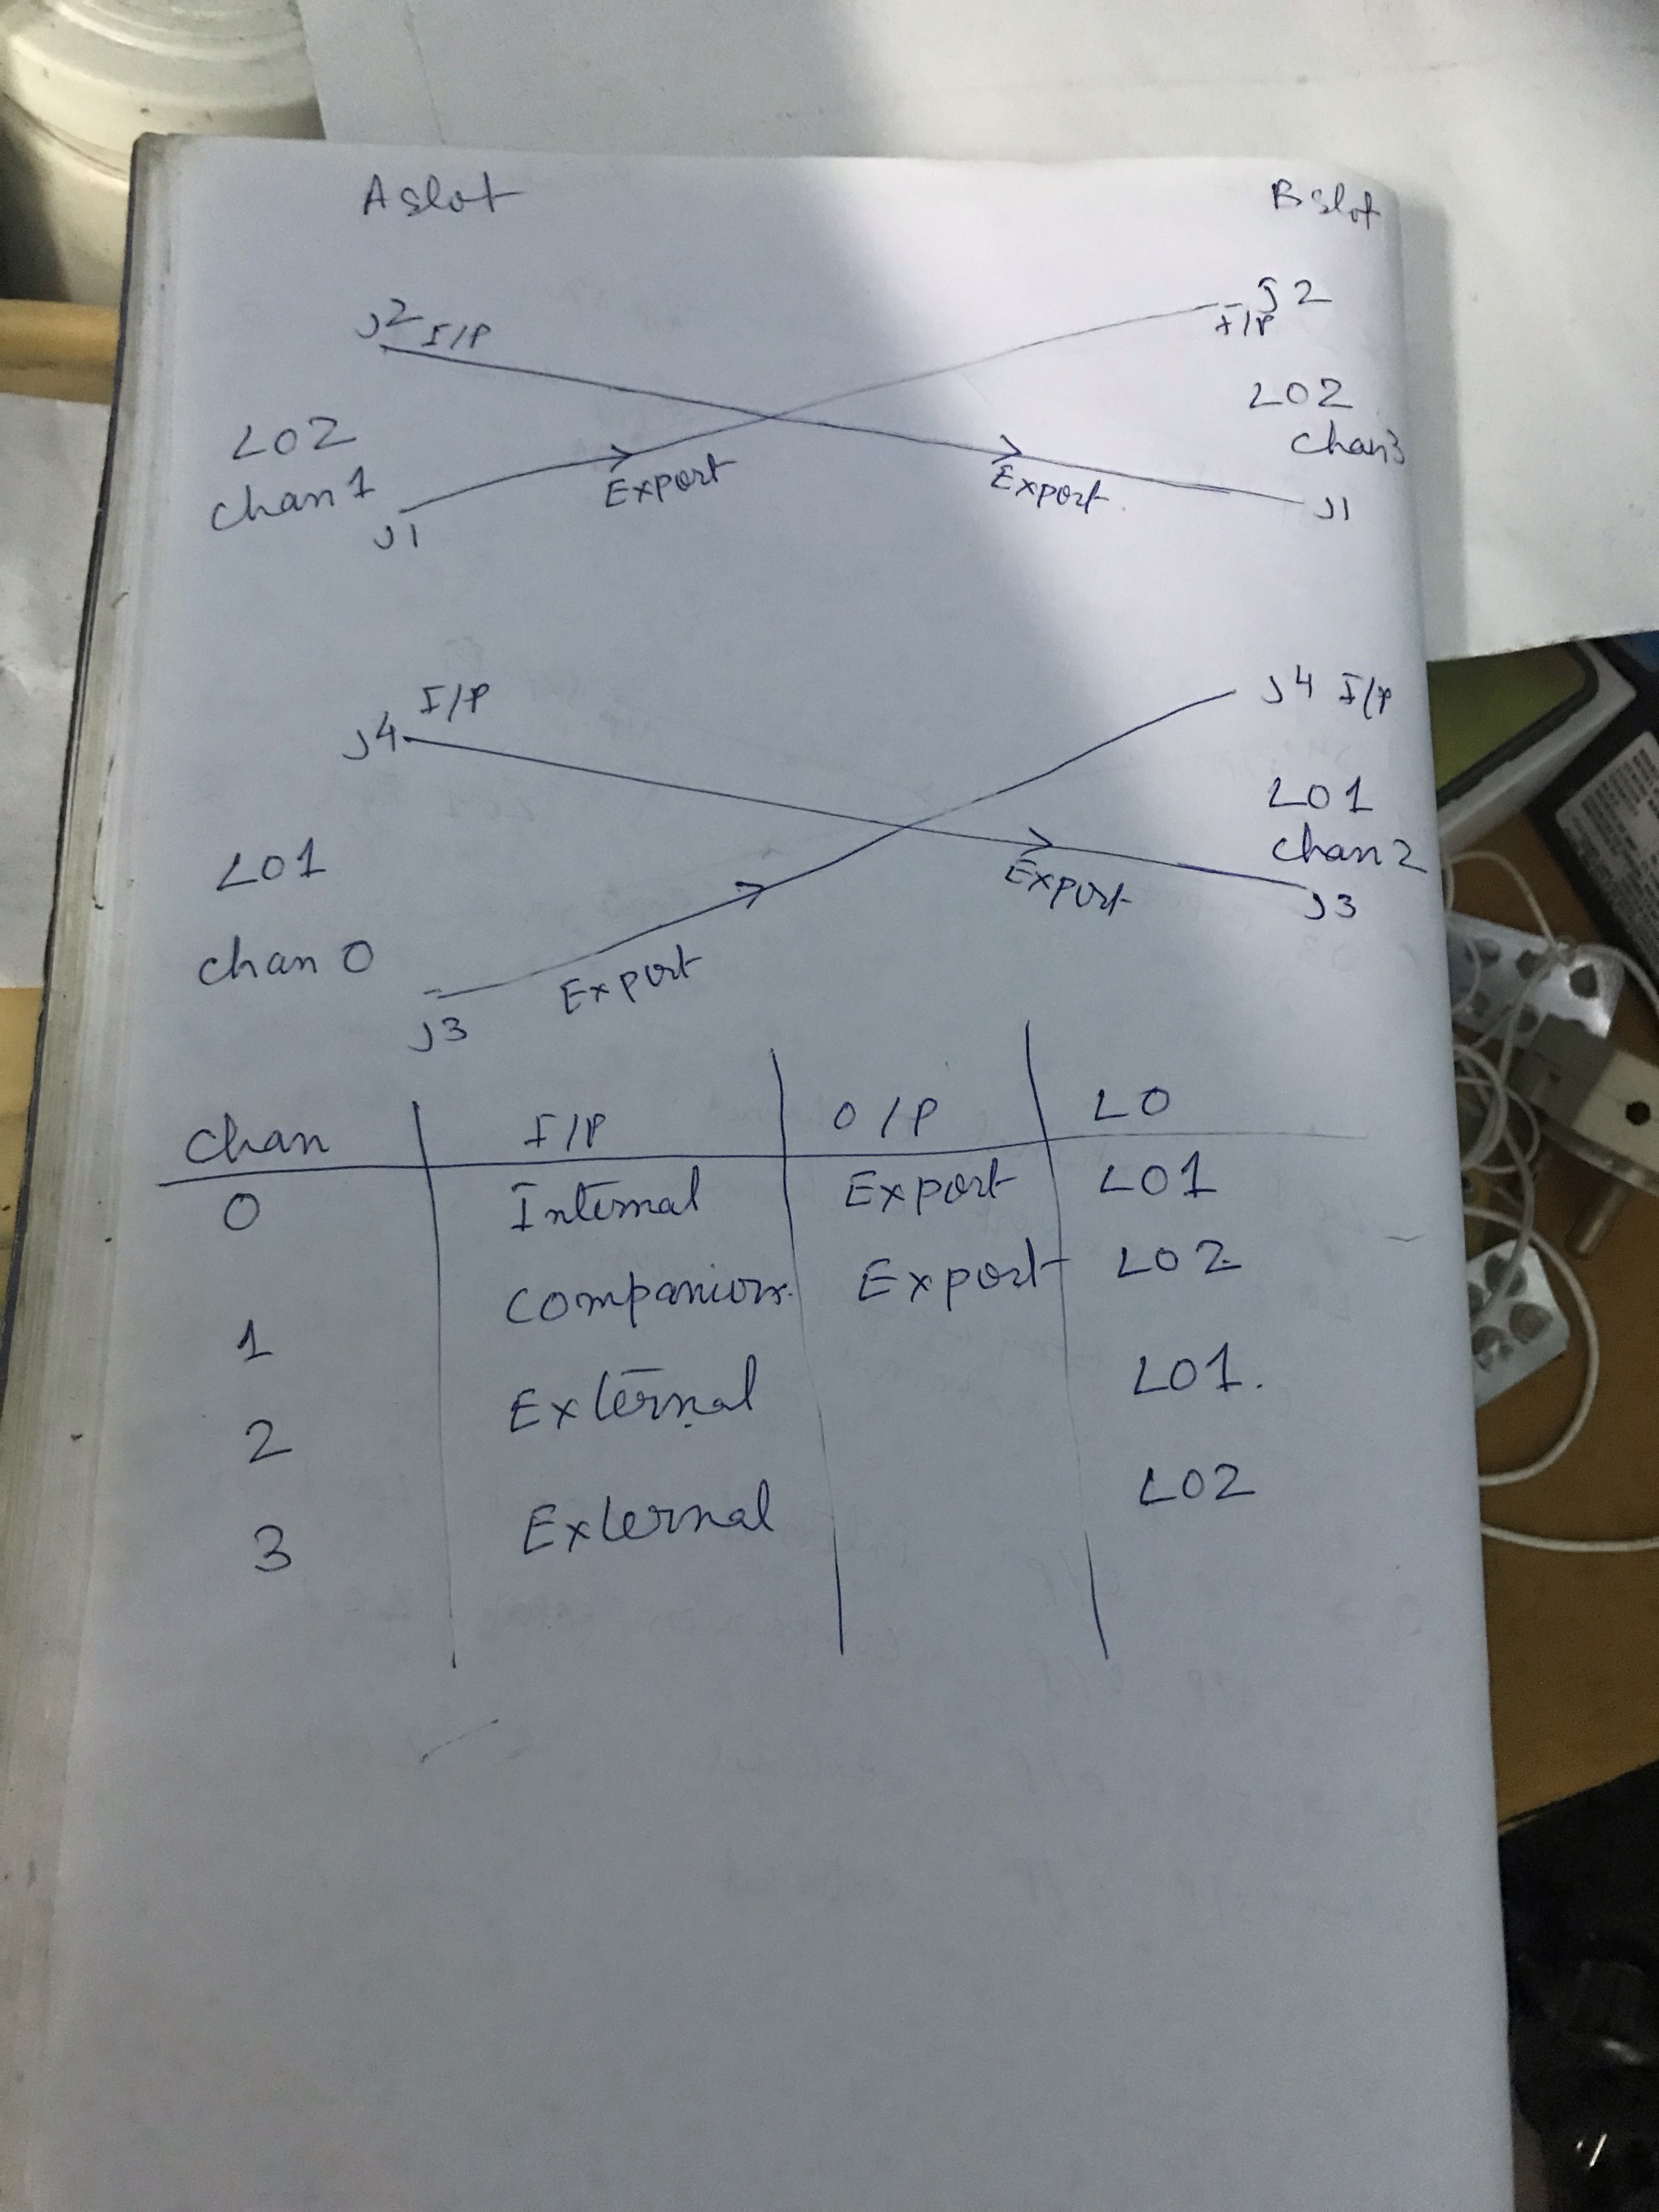 A slot B slot
J2 I/P J2
I/P
LO2 LO2
chan 1 chan 3
Export Export
J1 J1
J4 I/P J4 I/P
LO1 LO1
chan 0 chan 2
Export Export
J3 J3
chan I/P O/P LO
0 Internal Export LO1
1 companion Export LO2
2 External LO1.
3 External LO2